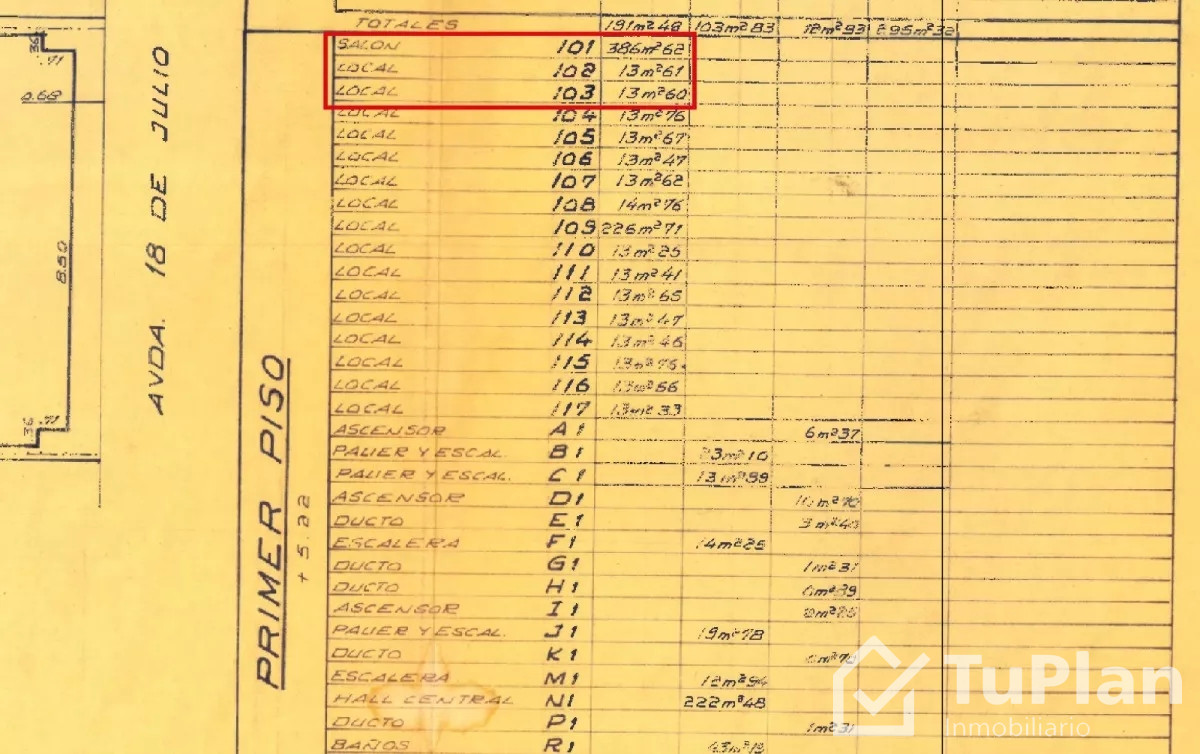 TOTALES 191m²48 103m²83 12m²93 2.95m²32
SALON 101 386m²62
LOCAL 102 13m²61
LOCAL 103 13m²60
LOCAL 104 13m²76
LOCAL 105 13m²67
LOCAL 106 13m²47
LOCAL 107 13m²62
LOCAL 108 14m²76
LOCAL 109 226m²71
LOCAL 110 13m²25
LOCAL 111 13m²41
LOCAL 112 13m²65
LOCAL 113 13m²47
LOCAL 114 13m²46
LOCAL 115 13m²75
LOCAL 116 13m²66
LOCAL 117 13m²33
ASCENSOR A1 6m²37
PALIER Y ESCAL. B1 23m²10
PALIER Y ESCAL. C1 13m²99
ASCENSOR D1 10m²70
DUCTO E1 3m²40
ESCALERA F1 14m²25
DUCTO G1 1m²31
DUCTO H1 0m²39
ASCENSOR I1
PALIER Y ESCAL. J1 19m²78
DUCTO K1 0m²70
ESCALERA M1 12m²94
HALL CENTRAL N1 222m²48
DUCTO P1 1m²31
BAÑOS R1
PRIMER PISO
+5.22
AVDA. 18 DE JULIO
36
.71
0.68
8.50
36
.71
TuPlan
Inmobiliario